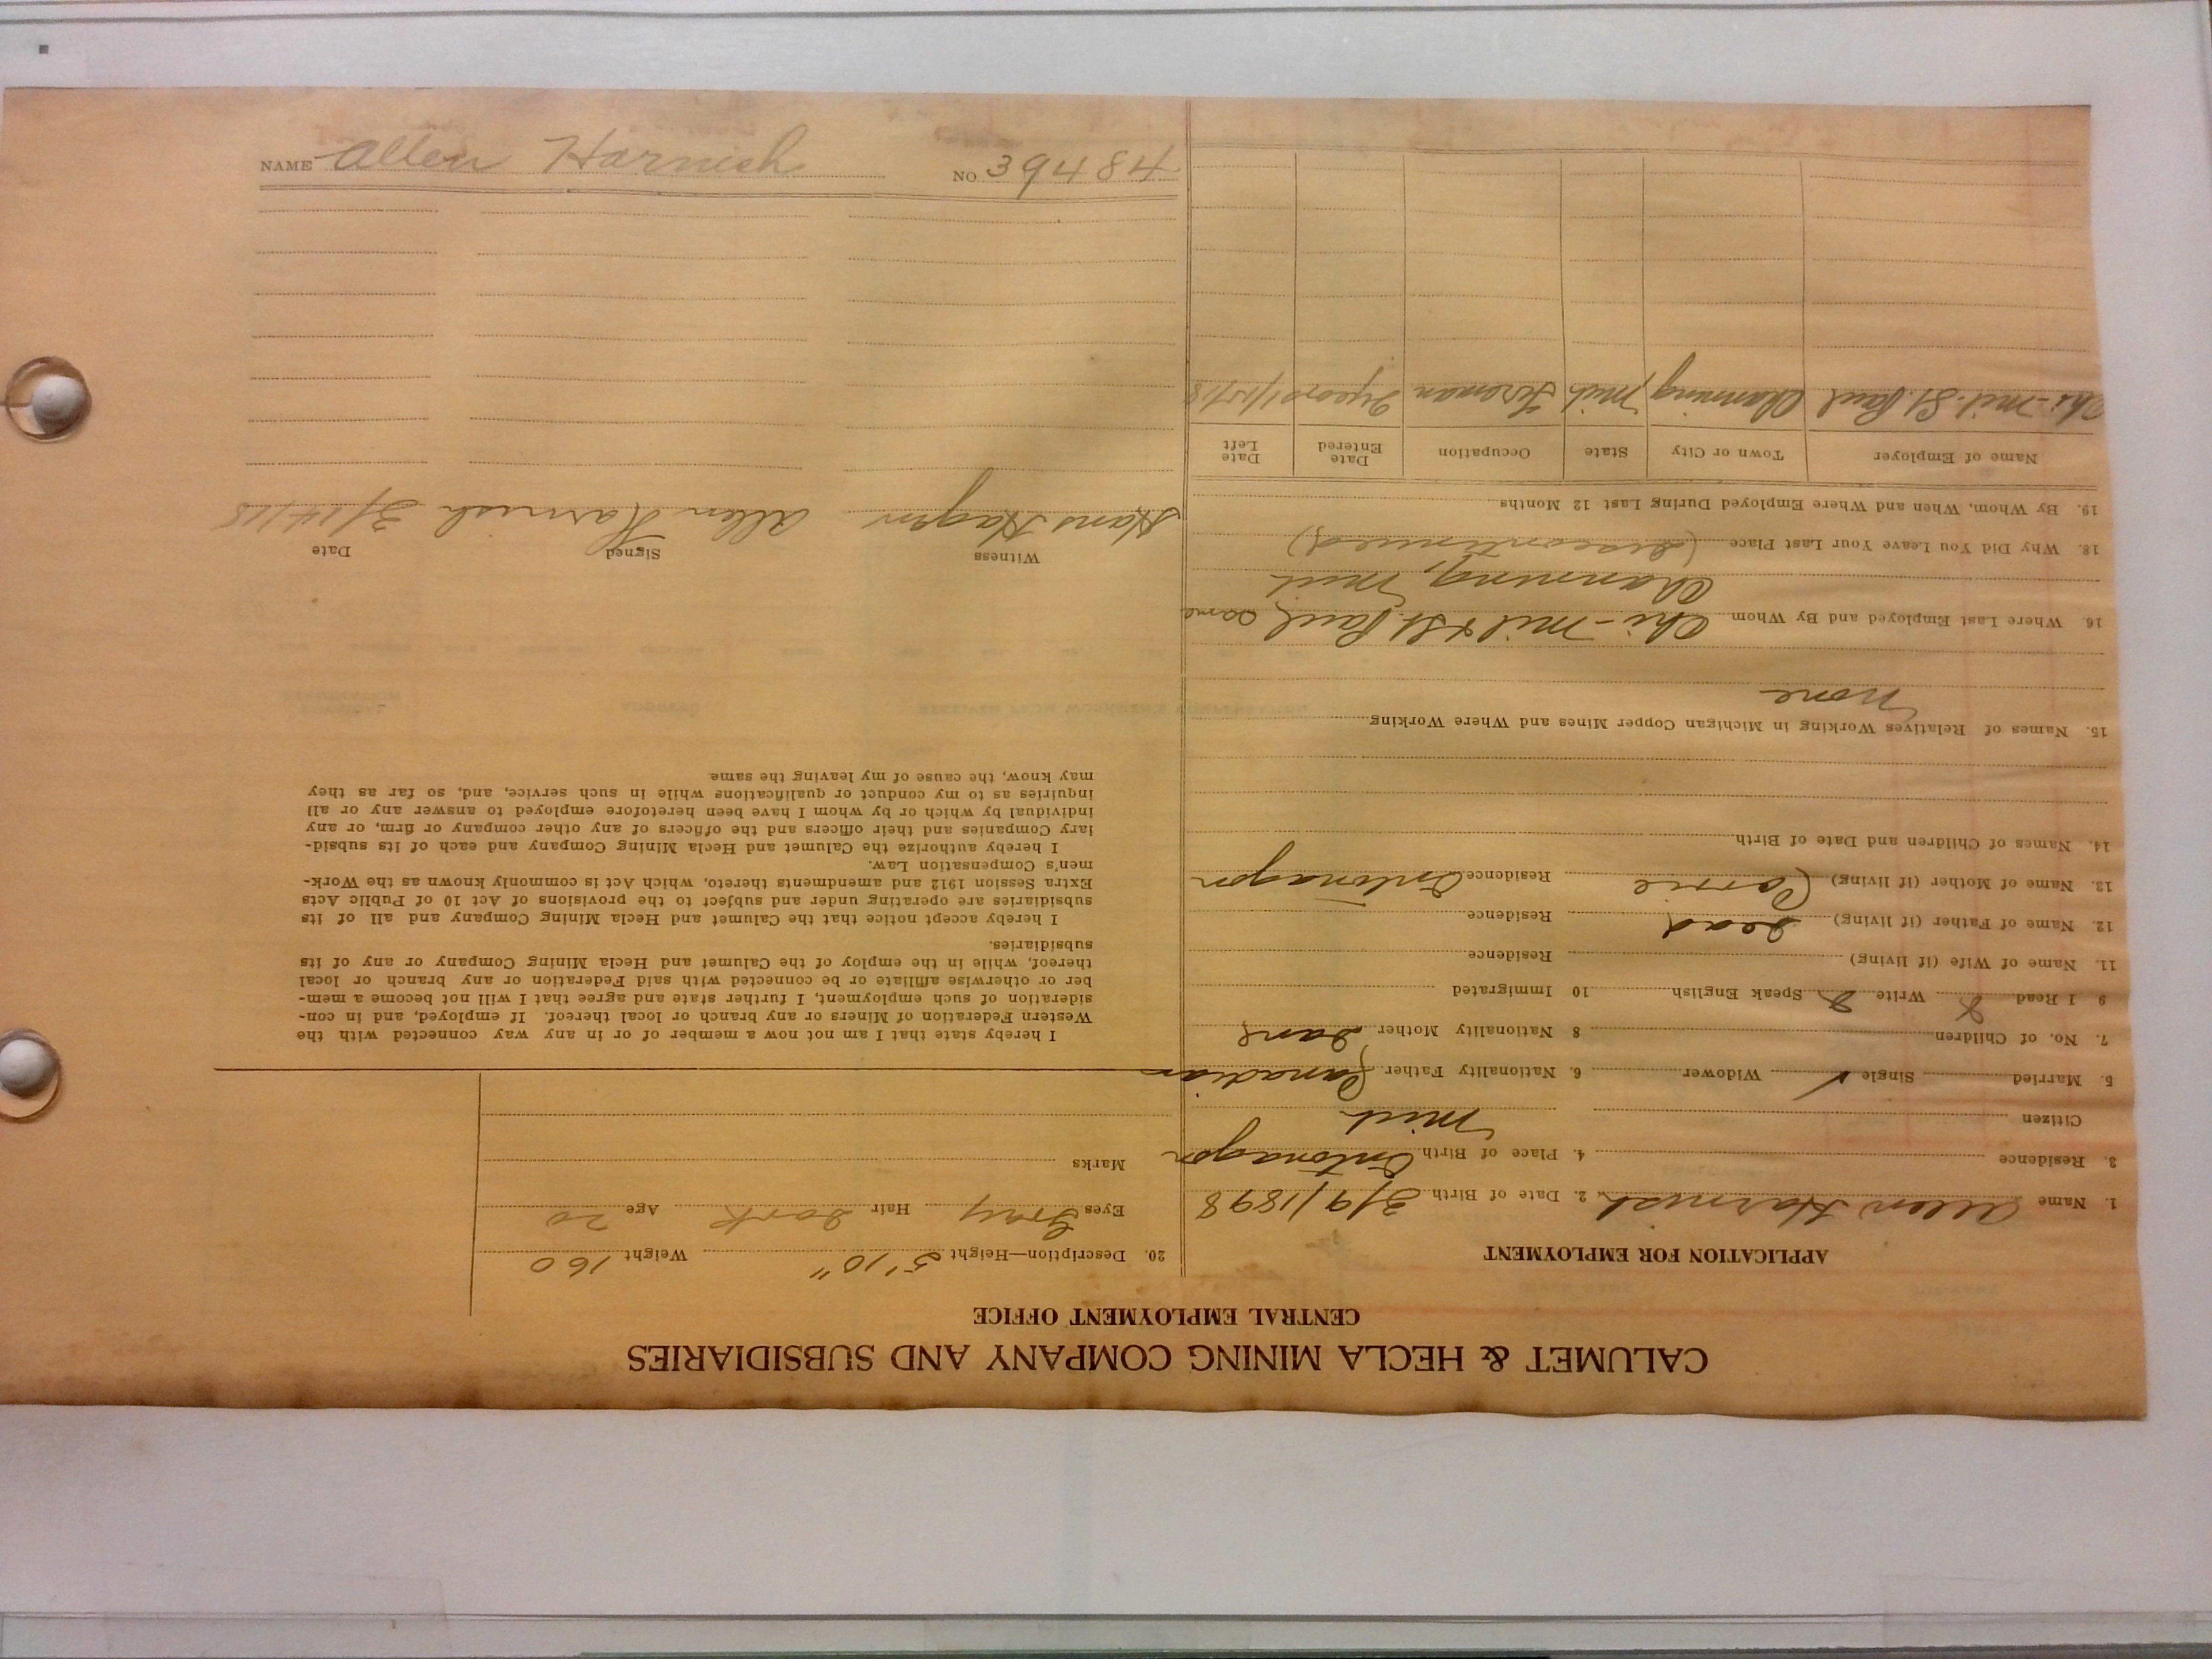 CALUMET & HECLA MINING COMPANY AND SUBSIDIARIES
CENTRAL EMPLOYMENT OFFICE
APPLICATION FOR EMPLOYMENT
1. Name Allen Harnish 2. Date of Birth 3/9/1898
3. Residence 4. Place of Birth Ontonagon
Citizen Mich
5. Married Single ✓ Widower 6. Nationality Father Canadian
7. No. of Children 8 Nationality Mother Same
9 I Read Write Speak English 10 Immigrated
11. Name of Wife (if living) Residence
12. Name of Father (if living) Dead Residence
13. Name of Mother (if living) Residence Ontonagon
14. Names of Children and Date of Birth
15. Names of Relatives Working in Michigan Copper Mines and Where Working
None
16. Where Last Employed and By Whom Chi-Mil & St. Paul, same
Channing, Mich
18. Why Did You Leave Your Last Place (discontinued)
19. By Whom, When and Where Employed During Last 12 Months
Name of Employer Town or City State Occupation Date Entered Date Left
Chi-Mil. St. Paul Channing, Mich Fireman 2 years
20. Description—Height 5'10" Weight 160
Eyes Gray Hair Dark Age 20
Marks
I hereby state that I am not now a member of or in any way connected with the
Western Federation of Miners or any branch or local thereof. If employed, and in con-
sideration of such employment, I further state and agree that I will not become a mem-
ber or otherwise affiliate or be connected with said Federation or any branch or local
thereof, while in the employ of the Calumet and Hecla Mining Company or any of its
subsidiaries.
I hereby accept notice that the Calumet and Hecla Mining Company and all of its
subsidiaries are operating under and subject to the provisions of Act 10 of Public Acts
Extra Session 1912 and amendments thereto, which Act is commonly known as the Work-
men's Compensation Law.
I hereby authorize the Calumet and Hecla Mining Company and each of its subsid-
iary Companies and their officers and the officers of any other company or firm, or any
individual by which or by whom I have been heretofore employed to answer any or all
inquiries as to my conduct or qualifications while in such service, and, so far as they
may know, the cause of my leaving the same
Witness Signed Date
Hans Hagen Allen Harnish 3/14/18
NAME Allen Harnish NO. 39484